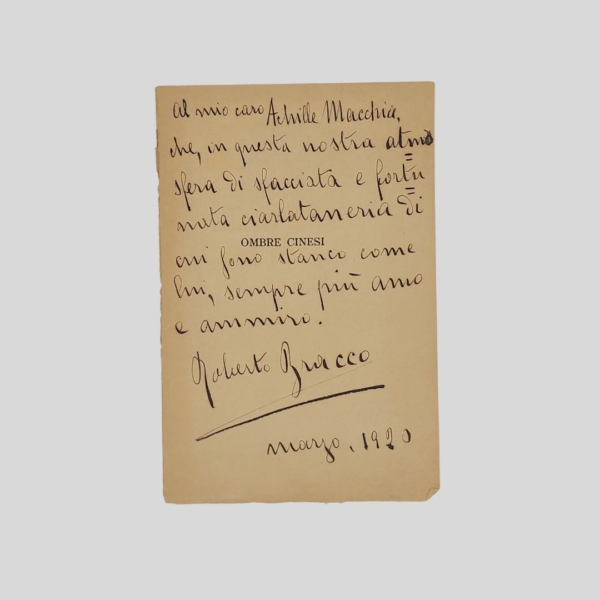 Al mio caro Achille Macchia,
che, in questa nostra atmo
sfera di sfacciata e fortu
nata ciarlataneria di
OMBRE CINESI
cui sono stanco come
lui, sempre più amo
e ammiro.
Roberto Bracco
marzo, 1920